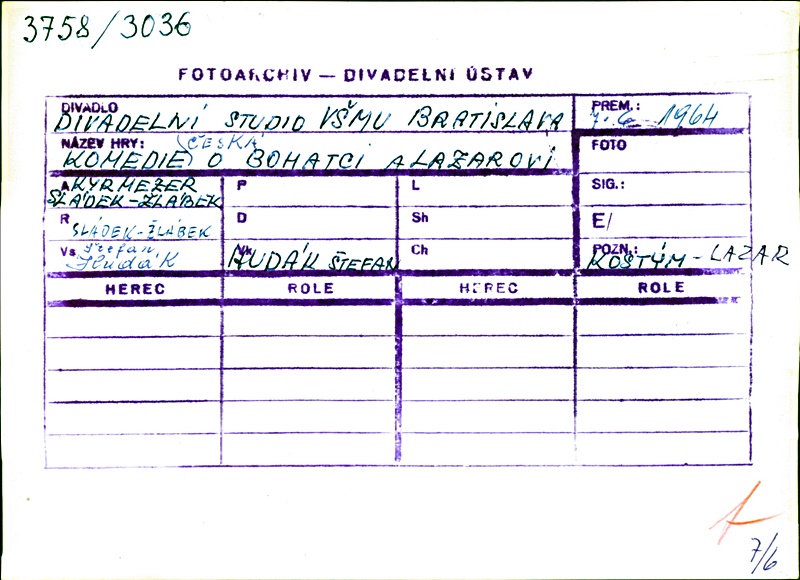 3758/3036
FOTOARCHIV — DIVADELNÍ ÚSTAV
DIVADLO
DIVADELNÍ STUDIO VŠMU BRATISLAVA
PREM.:
7. 6. 1964
NÁZEV HRY:
ČESKÁ
KOMEDIE O BOHATCI A LAZAROVI
FOTO
A KYRMEZER
SLÁDEK-ŽLÁBEK
P
L
SIG.:
R
SLÁDEK-ŽLÁBEK
D
Sh
E/
Vs Štefan
Hudák
Vk HUDÁK ŠTEFAN
Ch
POZN.:
KOSTÝM - LAZAR
HEREC ROLE HEREC ROLE
7/6